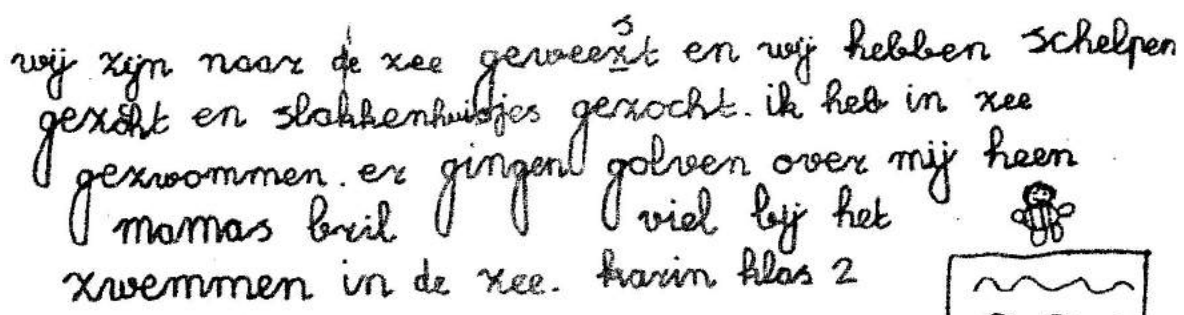 wij zijn naar de zee geweest en wij hebben schelpen
gezocht en slakkenhuisjes gezocht. ik heb in zee
gezwommen. er gingen golven over mij heen
mamas bril viel bij het
zwemmen in de zee. karin klas 2